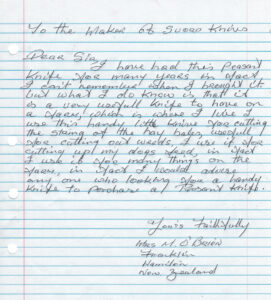 To the Maker of Svord Knives
Dear Sir,
I have had this Peasant
Knife for many years in fact
I can't remember when I brought it
but what I do know is that it
is a very usefull knife to have on
a farm, which is where I live I
use this handy little knive for cutting
the string of the hay bales, usefull
for cutting out weeds, I use it for
cutting up my dogs feed, in fact
I use it for many things on the
farm, in fact I would advise
any one who looking for a handy
Knife to purchase a Peasant Knife.
Yours Faithfully
Mrs M. O'Brien
Franklin
Hamilton
New Zealand